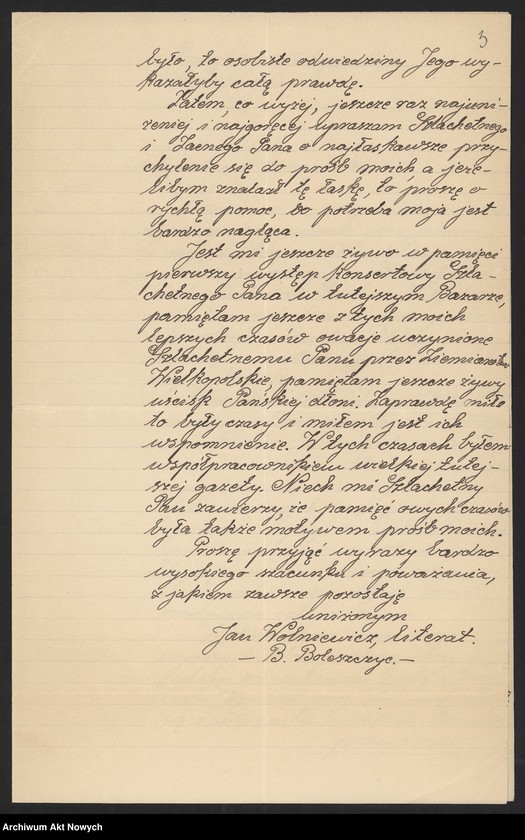 3
było, to osobiste odwiedziny Jego wy-
kazałyby całą prawdę.
Zatem, co wyżej, jeszcze raz najuni-
żeniej i najgoręcej upraszam Szlachetnego
i Zacnego Pana o najłaskawsze przy-
chylenie się do próśb moich, a jeże-
libym znalazł tę łaskę, to proszę o
rychłą pomoc, bo potrzeba moja jest
bardzo nagląca.
Jest mi jeszcze żywo w pamięci
pierwszy występ koncertowy Szla-
chetnego Pana w tutejszym Bazarze,
pamiętam jeszcze z tych moich
lepszych czasów owacje uczynione
Szlachetnemu Panu przez Ziemiaństwo
Wielkopolskie, pamiętam jeszcze żywy
uścisk Pańskiej dłoni. Zaprawdę miłe
to były czasy i miłem jest ich
wspomnienie. W tych czasach byłem
współpracownikiem wielkiej tutej-
szej gazety. Niech mi Szlachetny
Pan zawierzy, że pamięć owych czasów
była także motywem próśb moich.
Proszę przyjąć wyrazy bardzo
wysokiego szacunku i poważania,
z jakiem zawsze pozostaję
uniżonym
Jan Wolniewicz, literat.
— B. Boleszczyc. —
Archiwum Akt Nowych